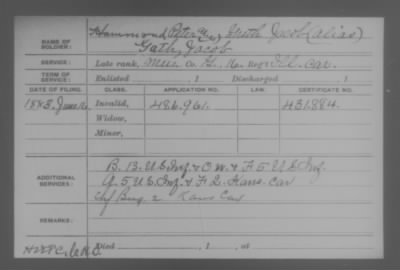 Hammond Peter Smith Jacob (alias)
NAME OF SOLDIER: Gath, Jacob
SERVICE: Late rank, Mus. Co. G., Reg't Ill. Cav.
TERM OF SERVICE: Enlisted , 1 Discharged , 1
DATE OF FILING. CLASS. APPLICATION NO. LAW. CERTIFICATE NO.
1883. June Invalid, 486.961. 431.884
Widow,
Minor,
B. 13. U S Inf. & C W. & F. 5 U S Inf.
ADDITIONAL SERVICES: A. 5 U S Inf. & F 2. Kans. Cav
Chf Bug. 2 Kans Cav
REMARKS:
Died , 1 , at